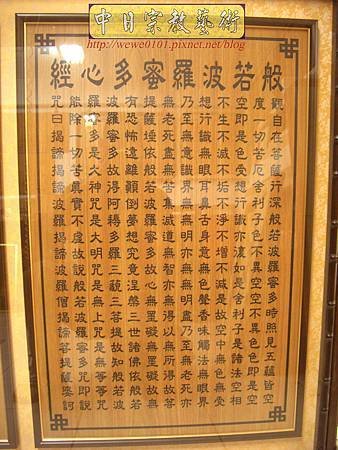 中日宗教藝術
http://wewe0101.pixnet.net/blog
般若波羅蜜多心經
觀自在菩薩行深般若波羅蜜多時照見五蘊皆空
度一切苦厄舍利子色不異空空不異色色即是空
空即是色受想行識亦復如是舍利子是諸法空相
不生不滅不垢不淨不增不減是故空中無色無受
想行識無眼耳鼻舌身意無色聲香味觸法無眼界
乃至無意識界無無明亦無無明盡乃至無老死亦
無老死盡無苦集滅道無智亦無得以無所得故菩
提薩埵依般若波羅蜜多故心無罣礙無罣礙故無
有恐怖遠離顛倒夢想究竟涅槃三世諸佛依般若
波羅蜜多故得阿耨多羅三藐三菩提故知般若波
羅蜜多是大神咒是大明咒是無上咒是無等等咒
能除一切苦真實不虛故說般若波羅蜜多咒即說
咒曰揭諦揭諦波羅揭諦波羅僧揭諦菩提薩婆訶